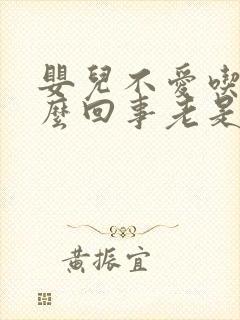 嬰兒不愛喫
麼回事老是
黃振宜